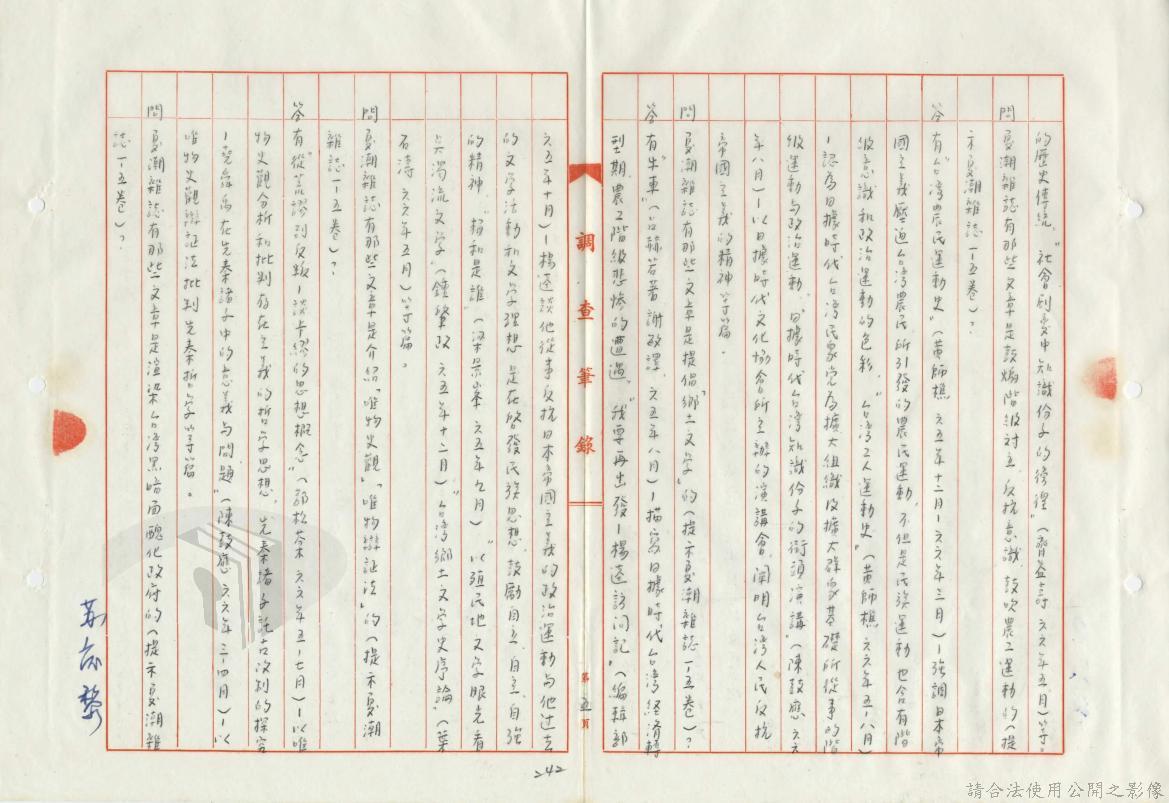 的歷史傳統。"社會劇變中知識份子的徬徨"(齊益壽 六六年五月)等。
問 夏潮雜誌有那些文章是鼓煽階級對立、反抗意識、鼓吹農工運動的(提
示夏潮雜誌一-五卷)?
答 有"台灣農民運動史"(黃師樵 六五年十二月-六六年三月)-強調日本帝
國主義壓迫台灣農民所引發的農民運動,不但是民族運動也含有階
級意識和政治運動的色彩。"台灣工人運動史"(黃師樵 六六年五-八月)
-認為日據時代台灣民眾黨為擴大組織及擴大群眾基礎所從事的階
級運動與政治運動。"日據時代台灣知識份子的街頭演講"(陳鼓應 六六
年八月)-以日據時代文化協會所主辦的演講會,闡明台灣人民反抗
帝國主義的精神等篇。
問 夏潮雜誌有那些文章是提倡「鄉土文學」的(提示夏潮雜誌一-五卷)?
答 有"牛車"(呂赫若著 謝敏譯 六五年八月)-描寫日據時代台灣經濟轉
型期,農工階級悲慘的遭遇。"我要再出發-楊逵訪問記"(編輯部
六五年十月)-楊逵談他從事反抗日本帝國主義的政治運動與他過去
的文學活動和文學理想是在啟發民族思想,鼓勵自立、自主、自強
的精神。"楊和是誰"(梁景峯 六五年九月)-"以殖民地文學眼光看
吳濁流文學"(鍾肇政 六五年十二月)"台灣鄉土文學史序論"(葉
石濤 六六年五月)等篇。
問 夏潮雜誌有那些文章是介紹「唯物史觀」「唯物辯証法」的(提示夏潮
雜誌一-五卷)?
答 有從"荒謬到反叛-談卡繆的思想概念"(郭松棻 六六年五-七月)-以唯
物史觀分析和批判存在主義的哲學思想。先秦諸子託古改制的探究
-堯舜禹在先秦諸子中的意義與問題"(陳鼓應 六六年三-四月)-以
唯物史觀辯証法批判先秦哲學等篇。
問 夏潮雜誌有那些文章是渲染台灣黑暗面醜化政府的(提示夏潮雜
誌一-五卷)?
調查筆錄
第五頁
242
請合法使用公開之影像